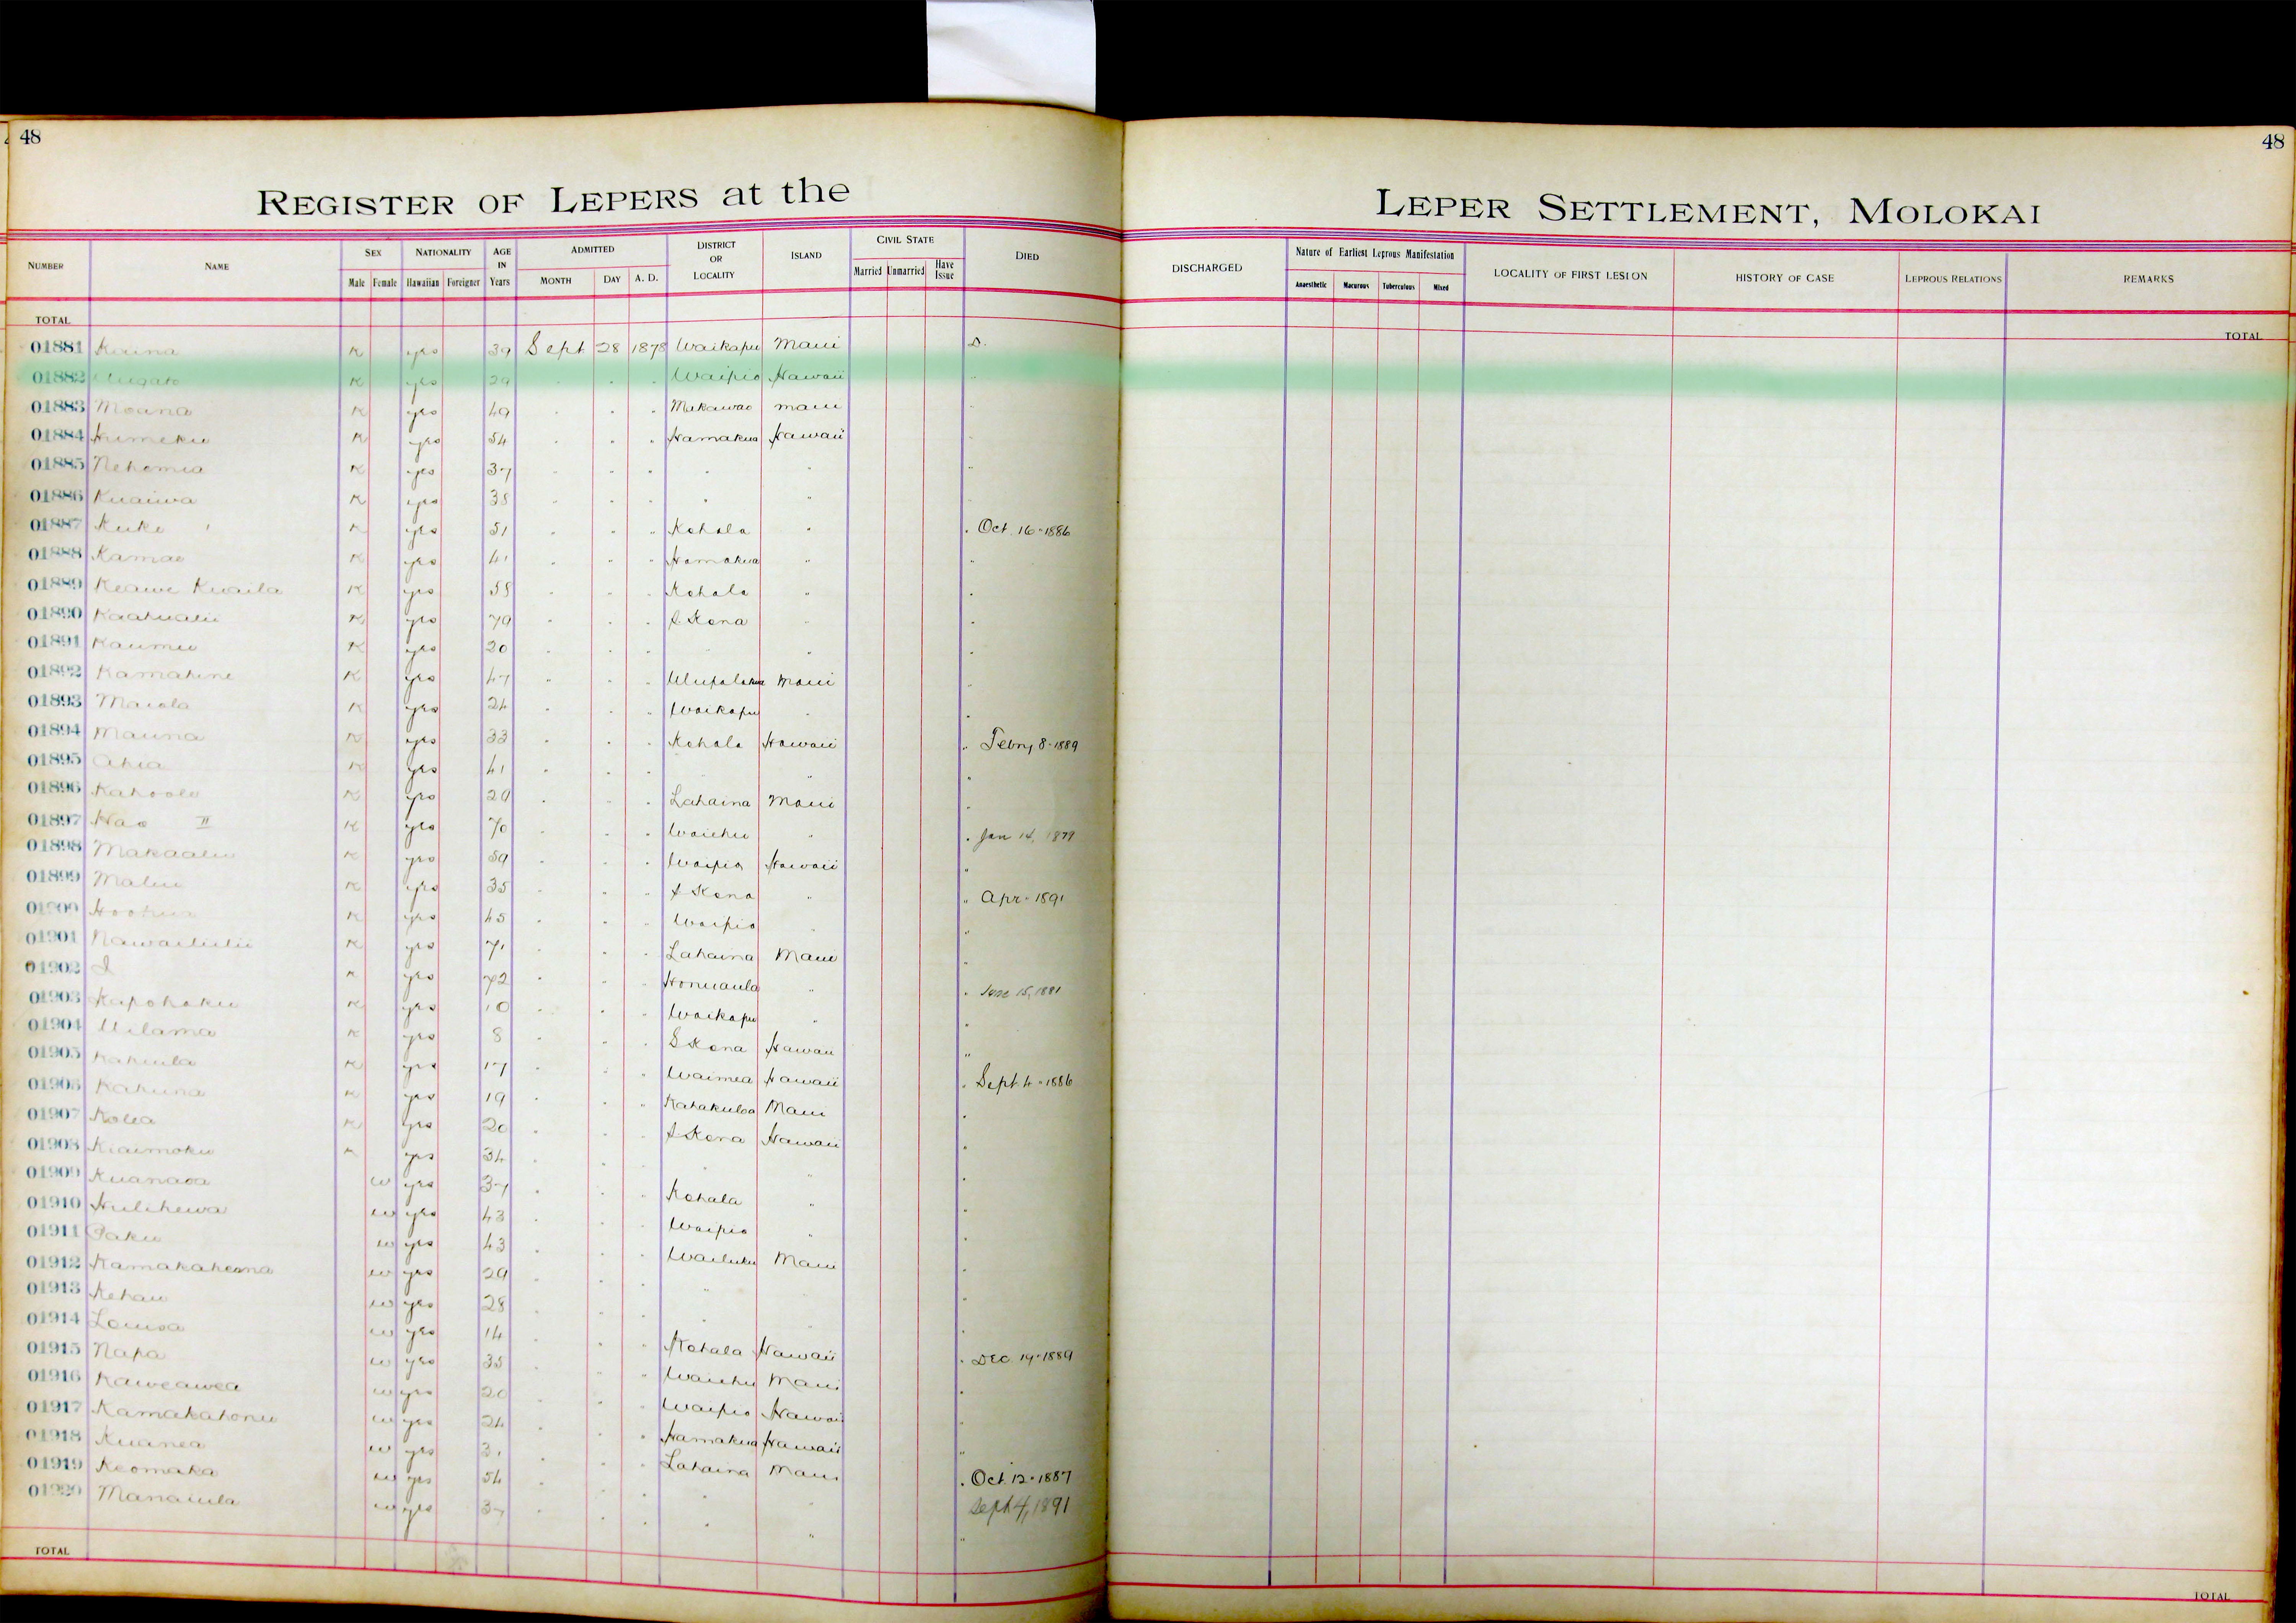 48
48
REGISTER OF LEPERS at the
LEPER SETTLEMENT, MOLOKAI
NUMBER NAME SEX Male Female NATIONALITY Hawaiian Foreigner AGE IN Years ADMITTED MONTH DAY A. D. DISTRICT OR LOCALITY ISLAND CIVIL STATE Married Unmarried Have Issue DIED
DISCHARGED Nature of Earliest Leprous Manifestation Anaesthetic Macurous Tuberculous Mixed LOCALITY OF FIRST LESION HISTORY OF CASE LEPROUS RELATIONS REMARKS
TOTAL
TOTAL
01881 K yes 39 Sept 28 1878 Waikapu Maui D.
01882 K yes 29 " " " Waipio Hawaii "
01883 Moana K yes 49 " " " Makawao Maui "
01884 Humeku K yes 54 " " " Hamakua Hawaii "
01885 Nehemia K yes 37 " " " " " "
01886 Kuaiwa K yes 38 " " " " " "
01887 Kuke K yes 51 " " " Kohala " " Oct. 16-1886
01888 Kamae K yes 41 " " " Hamakua " "
01889 Keawe Kuaila K yes 58 " " " Kohala " "
01890 Kaahualii K yes 79 " " " S Kona " "
01891 Kaumu K yes 20 " " " " " "
01892 Kamahine K yes 47 " " " Ulupalakua Maui "
01893 Maiola K yes 24 " " " Waikapu " "
01894 Mauna K yes 33 " " " Kohala Hawaii " Febry 8-1889
01895 Ahia K yes 41 " " " " " "
01896 Kahoole K yes 29 " " " Lahaina Maui "
01897 Hao II K yes 70 " " " Waiehu " " Jan 14, 1879
01898 Makaalu K yes 59 " " " Waipio Hawaii "
01899 Malu K yes 35 " " " S Kona " " Apr. 1891
01900 K yes 45 " " " Waipio " "
01901 Nawailiilii K yes 71 " " " Lahaina Maui "
01902 I K yes 72 " " " Honuaula " " June 15, 1881
01903 Kapohaku K yes 10 " " " Waikapu " "
01904 Uilama K yes 8 " " " S Kona Hawaii "
01905 Kahiula K yes 17 " " " Waimea Hawaii " Sept 4-1886
01906 Kahuna K yes 19 " " " Kahakuloa Maui "
01907 Kolea K yes 20 " " " S Kona Hawaii "
01908 Kiaimoku K yes 34 " " " " " "
01909 Kuanaoa w yes 37 " " " Kohala " "
01910 Hulihewa w yes 43 " " " Waipio " "
01911 Paku w yes 43 " " " Wailuku Maui "
01912 w yes 29 " " " " " "
01913 Kehau w yes 28 " " " " " "
01914 Louisa w yes 14 " " " Kohala Hawaii " DEC. 19-1889
01915 Napa w yes 35 " " " Waiehu Maui "
01916 Kaweawea w yes 20 " " " Waipio Hawaii "
01917 Kamakahonu w yes 24 " " " Hamakua Hawaii "
01918 Kuanea w yes 31 " " " Lahaina Maui " Oct 12-1887
01919 Keomaka w yes 54 " " " " " Sept 4, 1891
01920 Manaiula w yes 37 " " " " " "
TOTAL
TOTAL